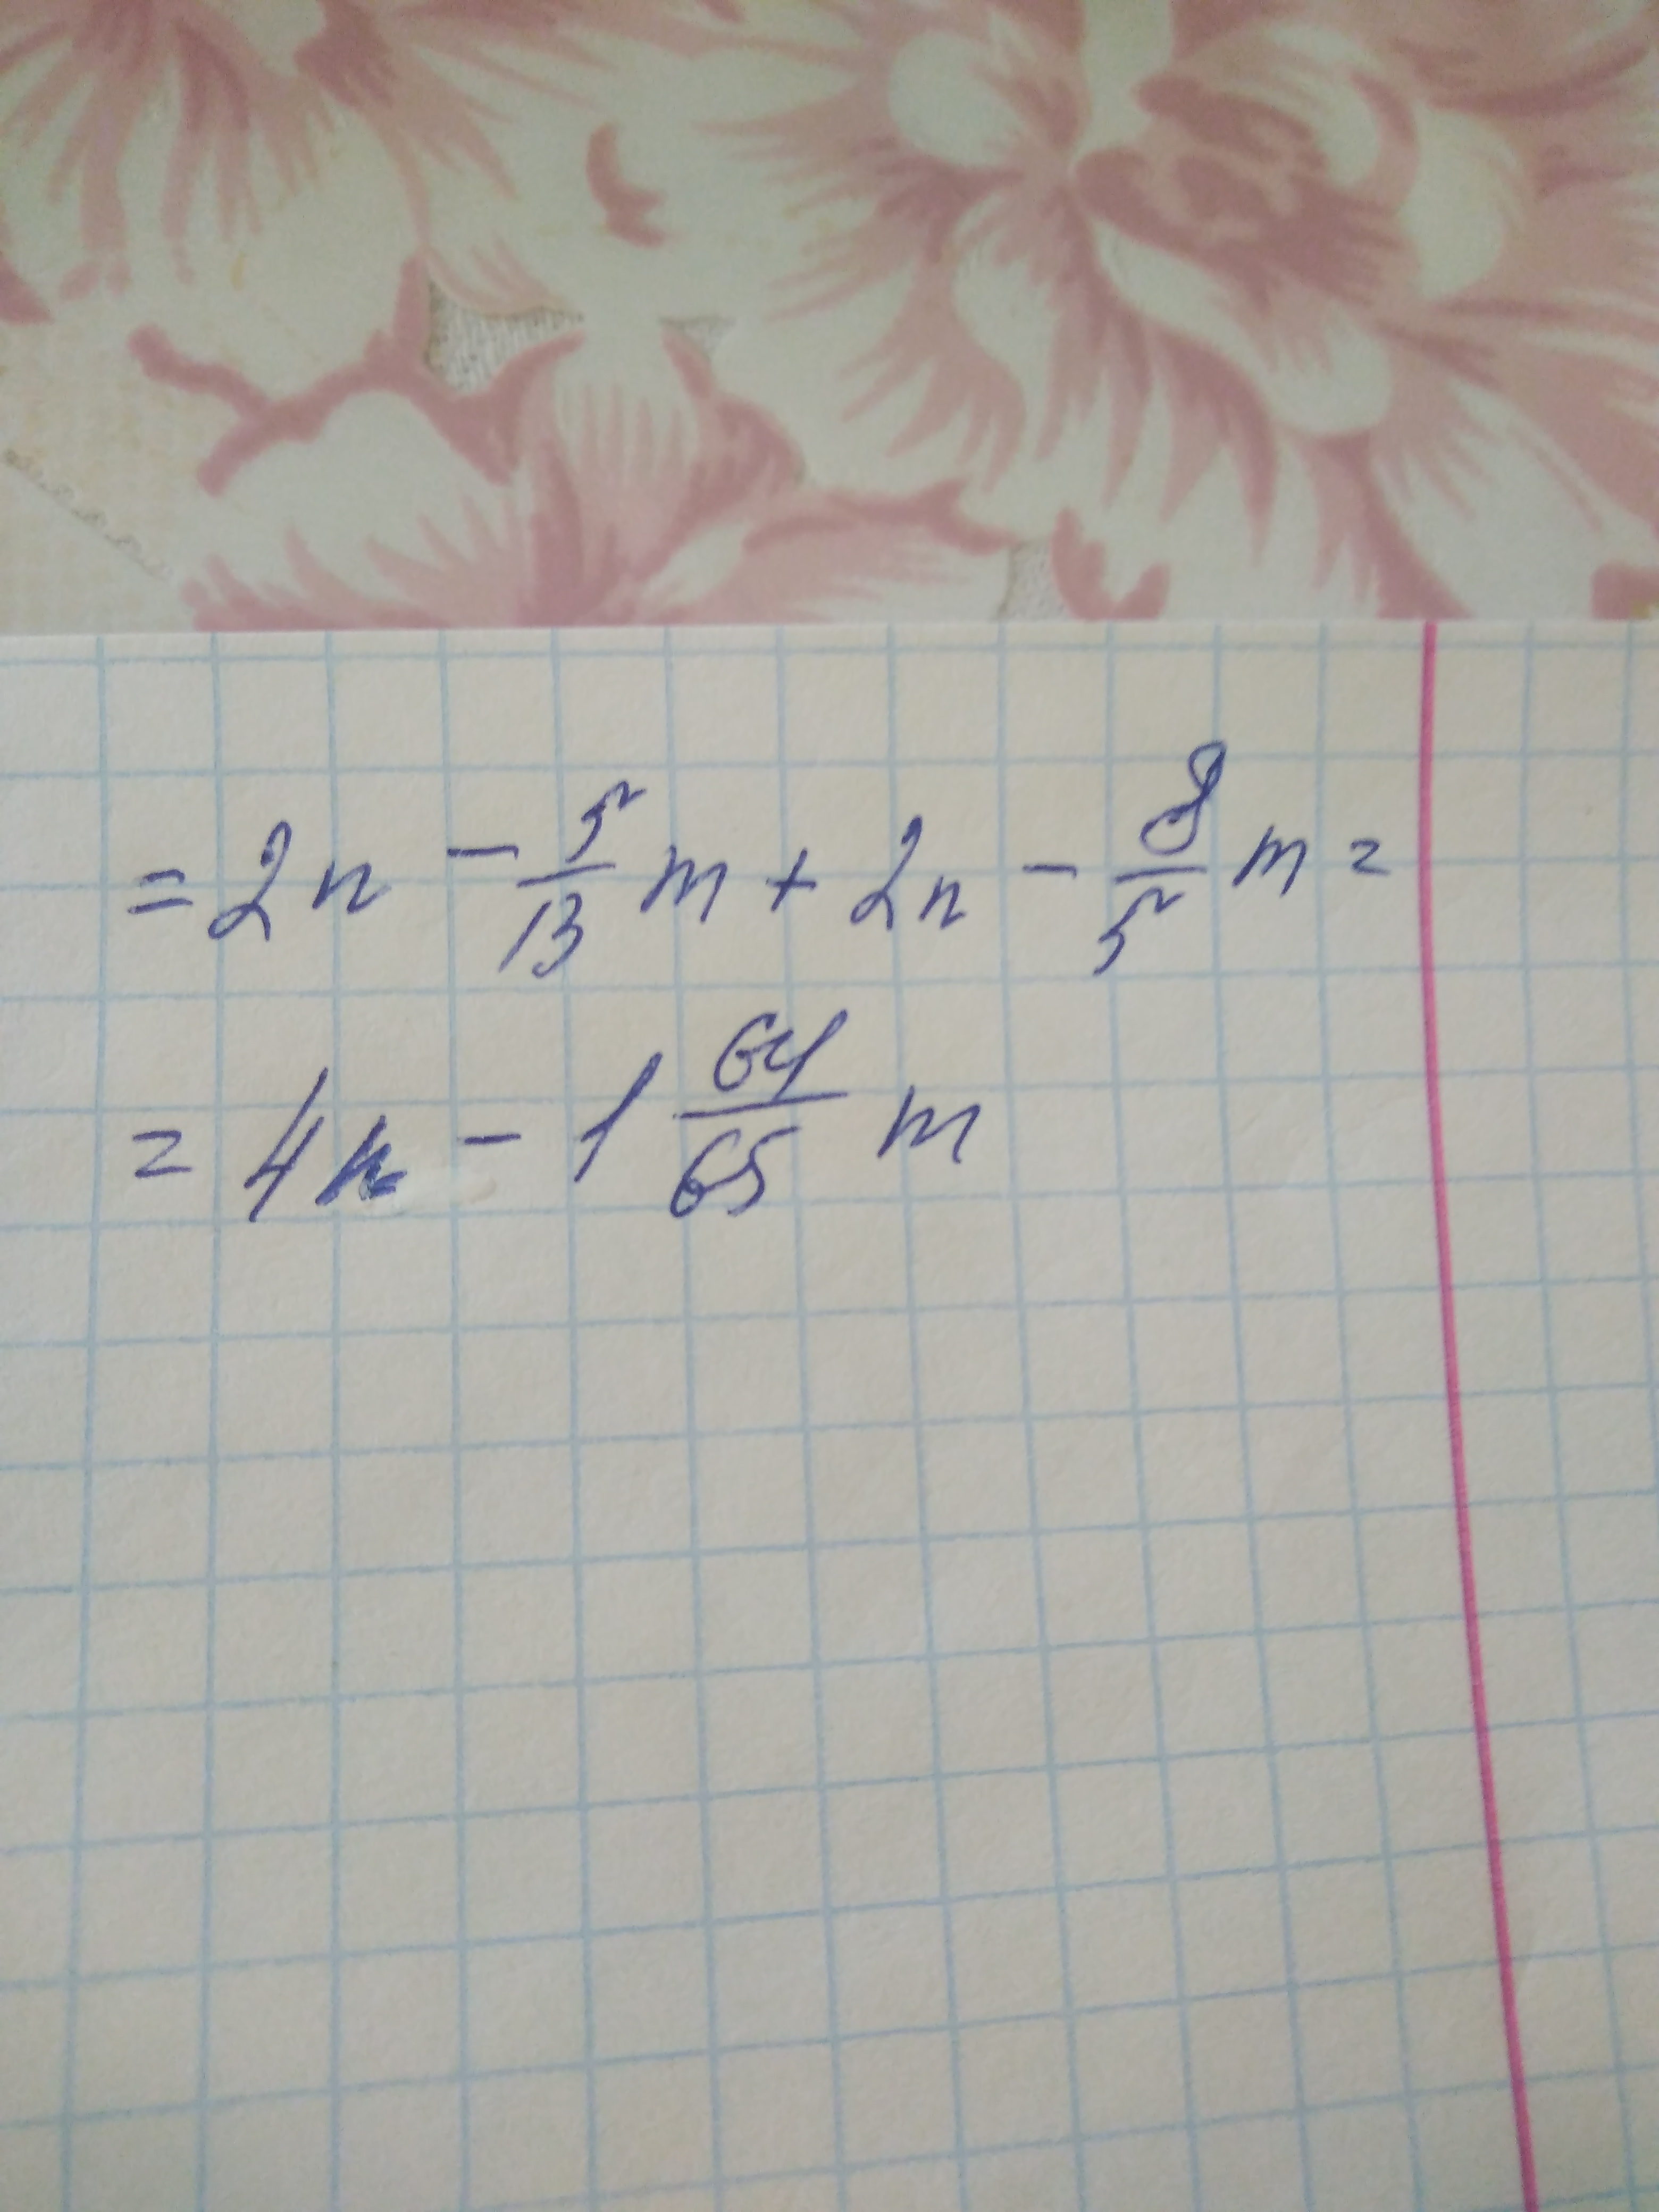 = 2n - 5/13 m + 2n - 8/5 m =
= 4n - 1 64/65 m